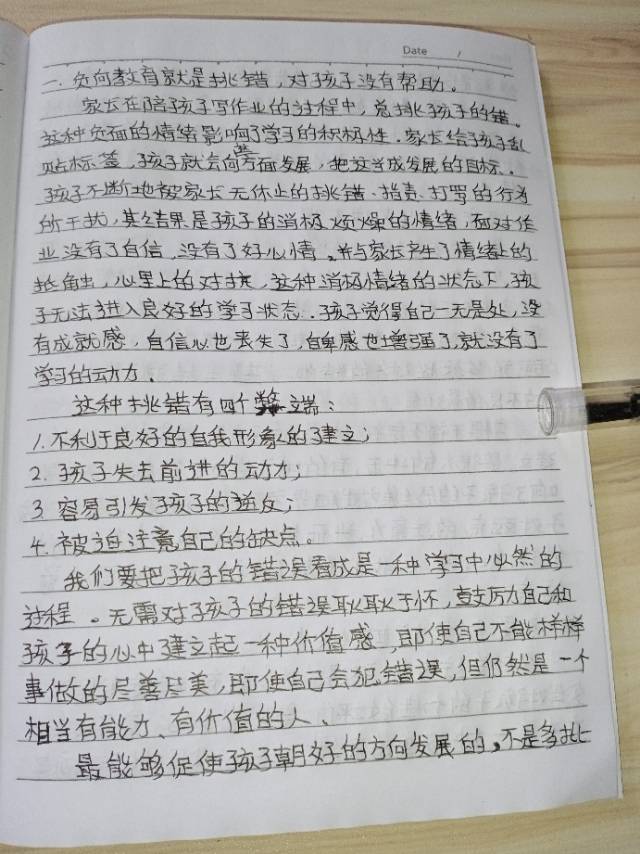 Date /
一.负向教育就是挑错，对孩子没有帮助。
家长在陪孩子写作业的过程中，总挑孩子的错。
这种负面的情绪影响了学习的积极性.家长给孩子乱
贴标签，孩子就会向这方面发展，把这当成发展的目标.
孩子不断地被家长无休止的挑错、指责、打骂的行为
所干扰，其结果是孩子的消极、烦燥的情绪，面对作
业没有了自信，没有了好心情。并与家长产生了情绪上的
抵触，心里上的对抗，这种消极情绪的状态下，孩
子无法进入良好的学习状态.孩子觉得自己一无是处，没
有成就感，自信心也丧失了，自卑感也增强了，就没有了
学习的动力.
这种挑错有四个弊端：
1.不利于良好的自我形象的建立；
2.孩子失去前进的动力；
3.容易引发孩子的逆反；
4.被迫注意自己的缺点。
我们要把孩子的错误看成是一种学习中必然的
过程。无需对孩子的错误耿耿于怀，鼓励自己和
孩子的心中建立起一种价值感，即使自己不能样样
事做的尽善尽美，即使自己会犯错误，但仍然是一个
相当有能力、有价值的人.
最能够促使孩子朝好的方向发展的，不是多挑